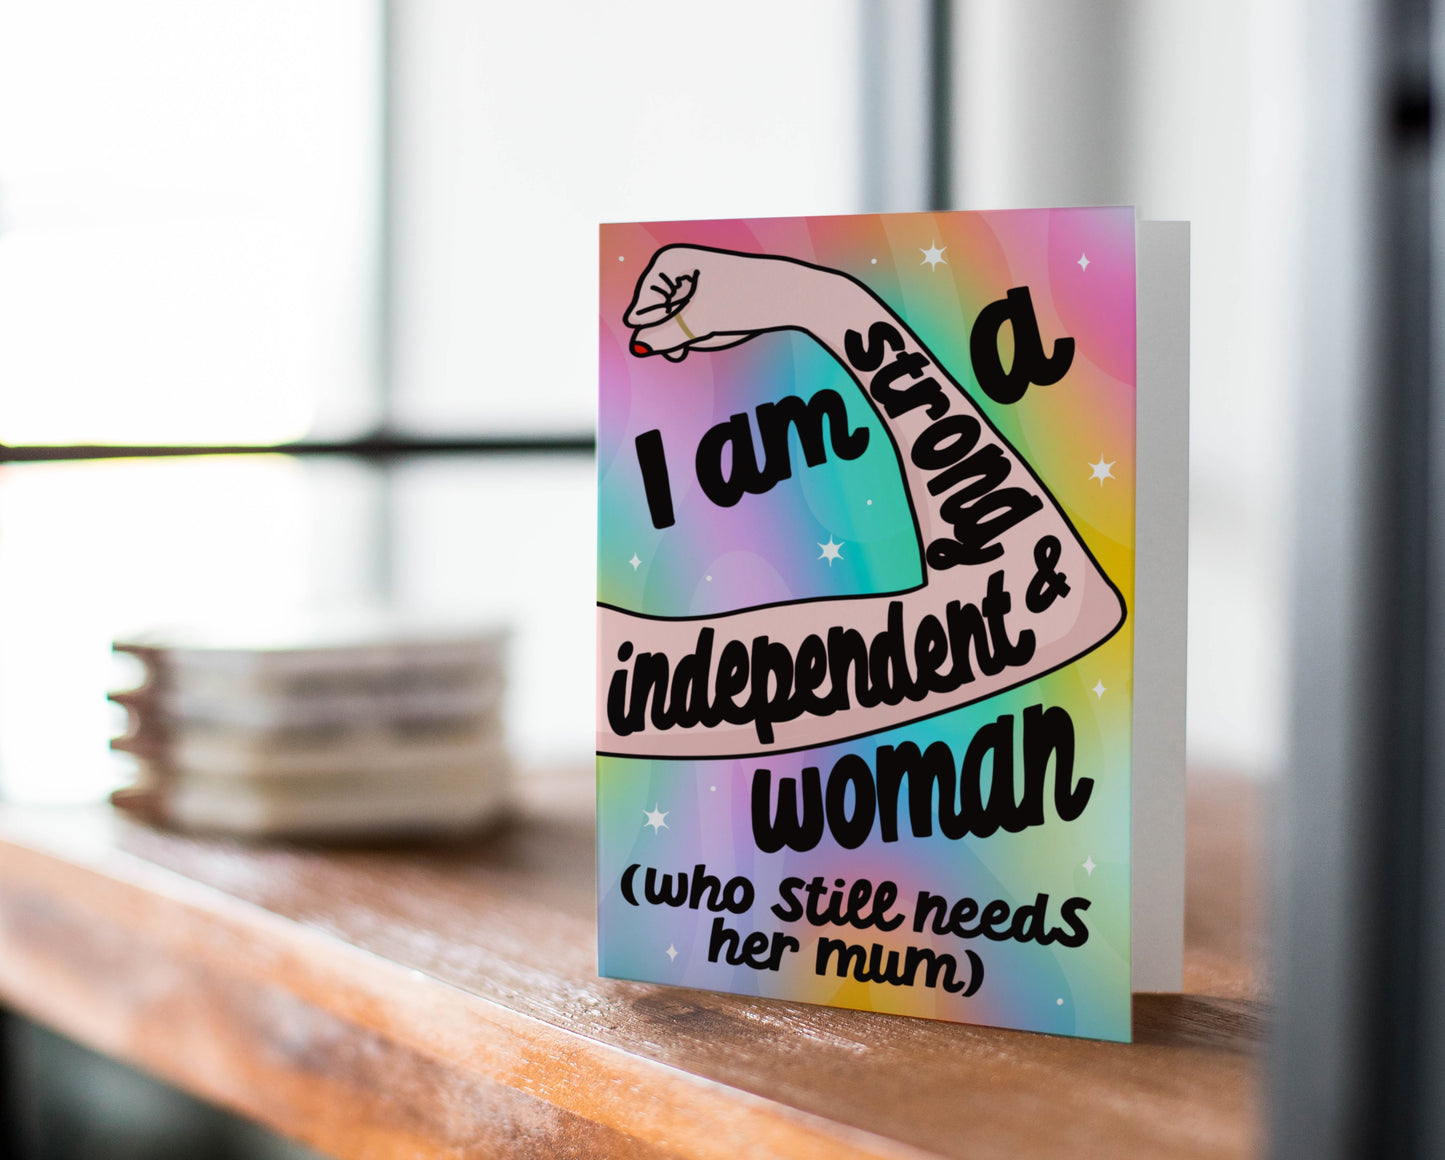 I am a
strong &
independent
woman
(who still needs
her mum)